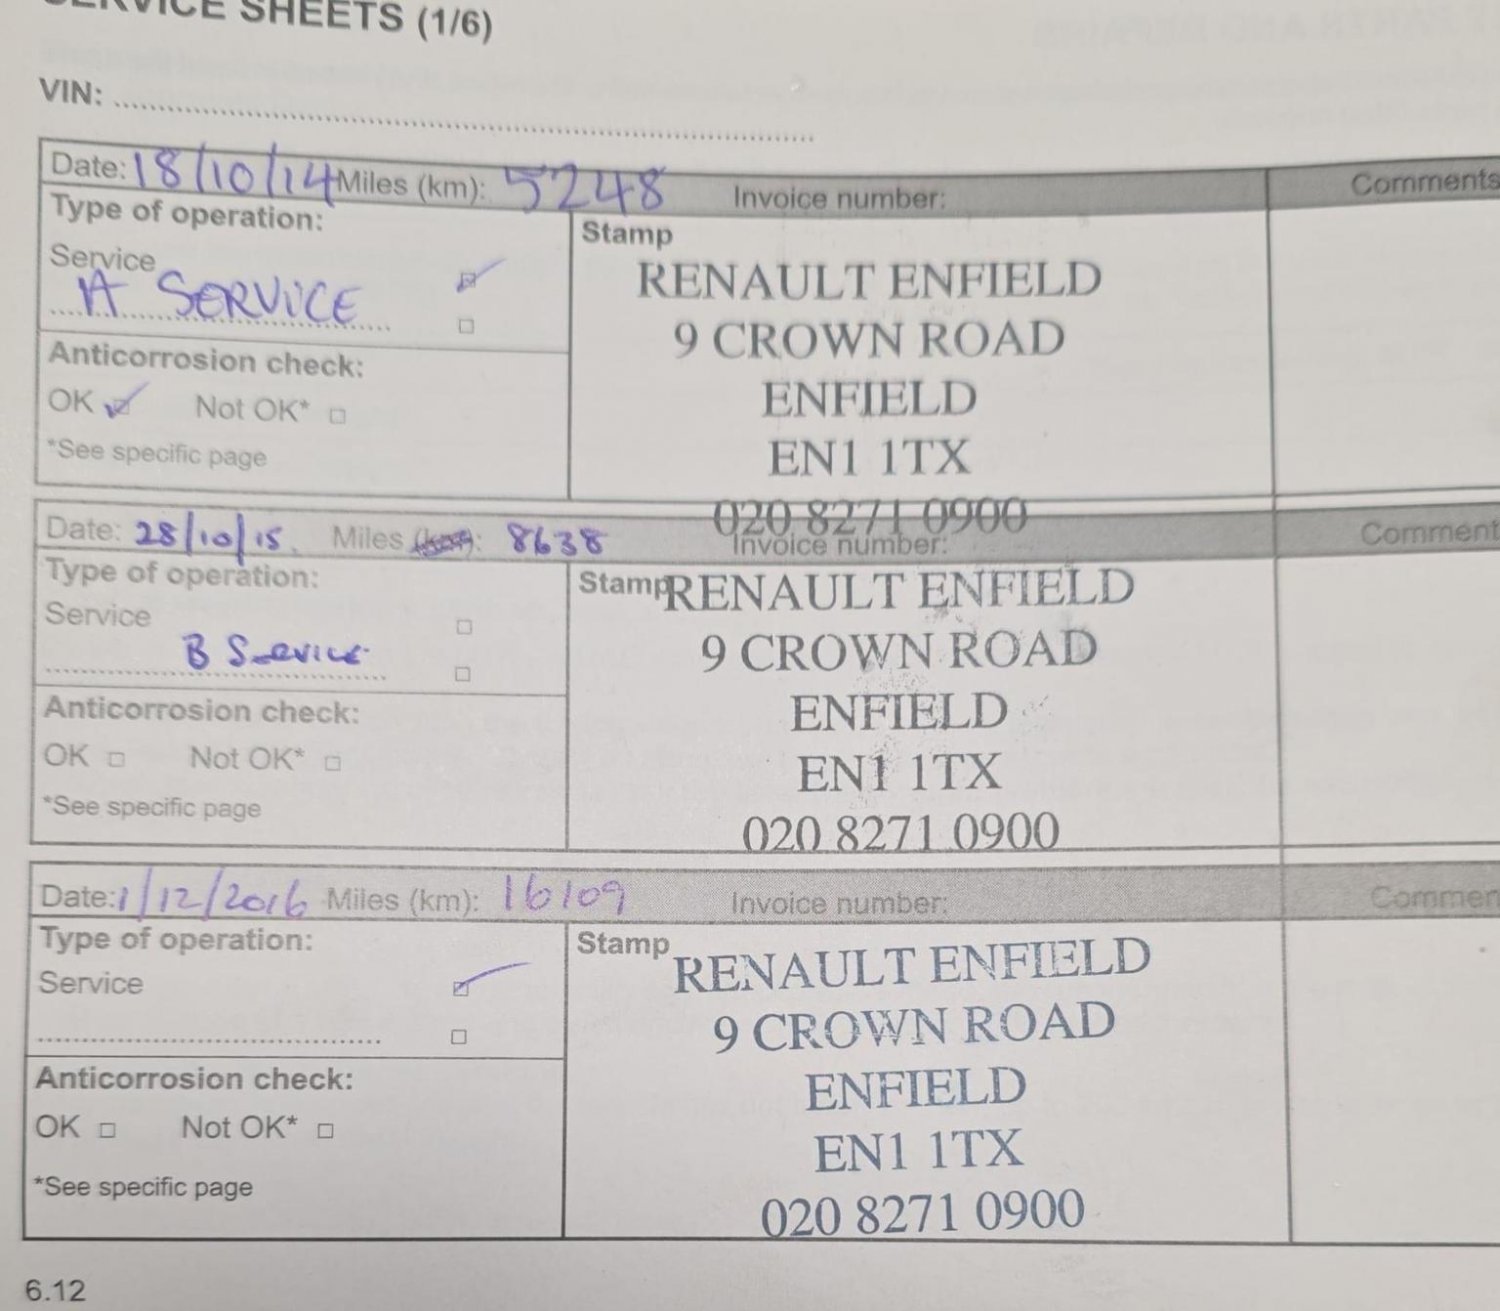 SERVICE SHEETS (1/6)
VIN:
Date: 18/10/14 Miles (km): 5248 Invoice number: Comments
Type of operation:
Stamp
Service
A SERVICE
RENAULT ENFIELD
9 CROWN ROAD
ENFIELD
EN1 1TX
020 8271 0900
Anticorrosion check:
OK Not OK*
*See specific page
Date: 28/10/15. Miles (km): 8638 Invoice number: Comment
Type of operation:
Stamp
Service
B Service
RENAULT ENFIELD
9 CROWN ROAD
ENFIELD
EN1 1TX
020 8271 0900
Anticorrosion check:
OK Not OK*
*See specific page
Date: 1/12/2016 Miles (km): 16109 Invoice number: Commen
Type of operation:
Stamp
Service
RENAULT ENFIELD
9 CROWN ROAD
ENFIELD
EN1 1TX
020 8271 0900
Anticorrosion check:
OK Not OK*
*See specific page
6.12